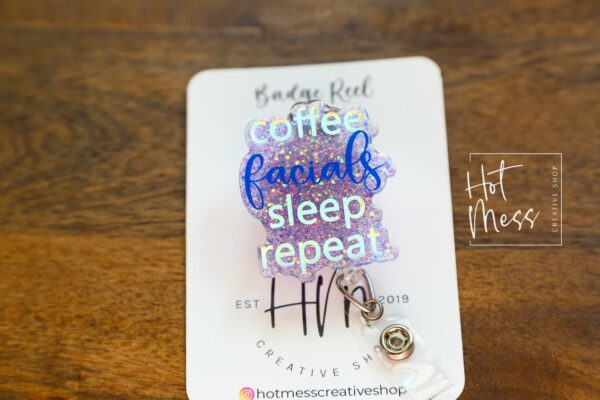 Badge Reel
coffee.
facials
sleep.
repeat.
EST HM 2019
CREATIVE SHOP
hotmesscreativeshop
Hot
Mess
CREATIVE SHOP